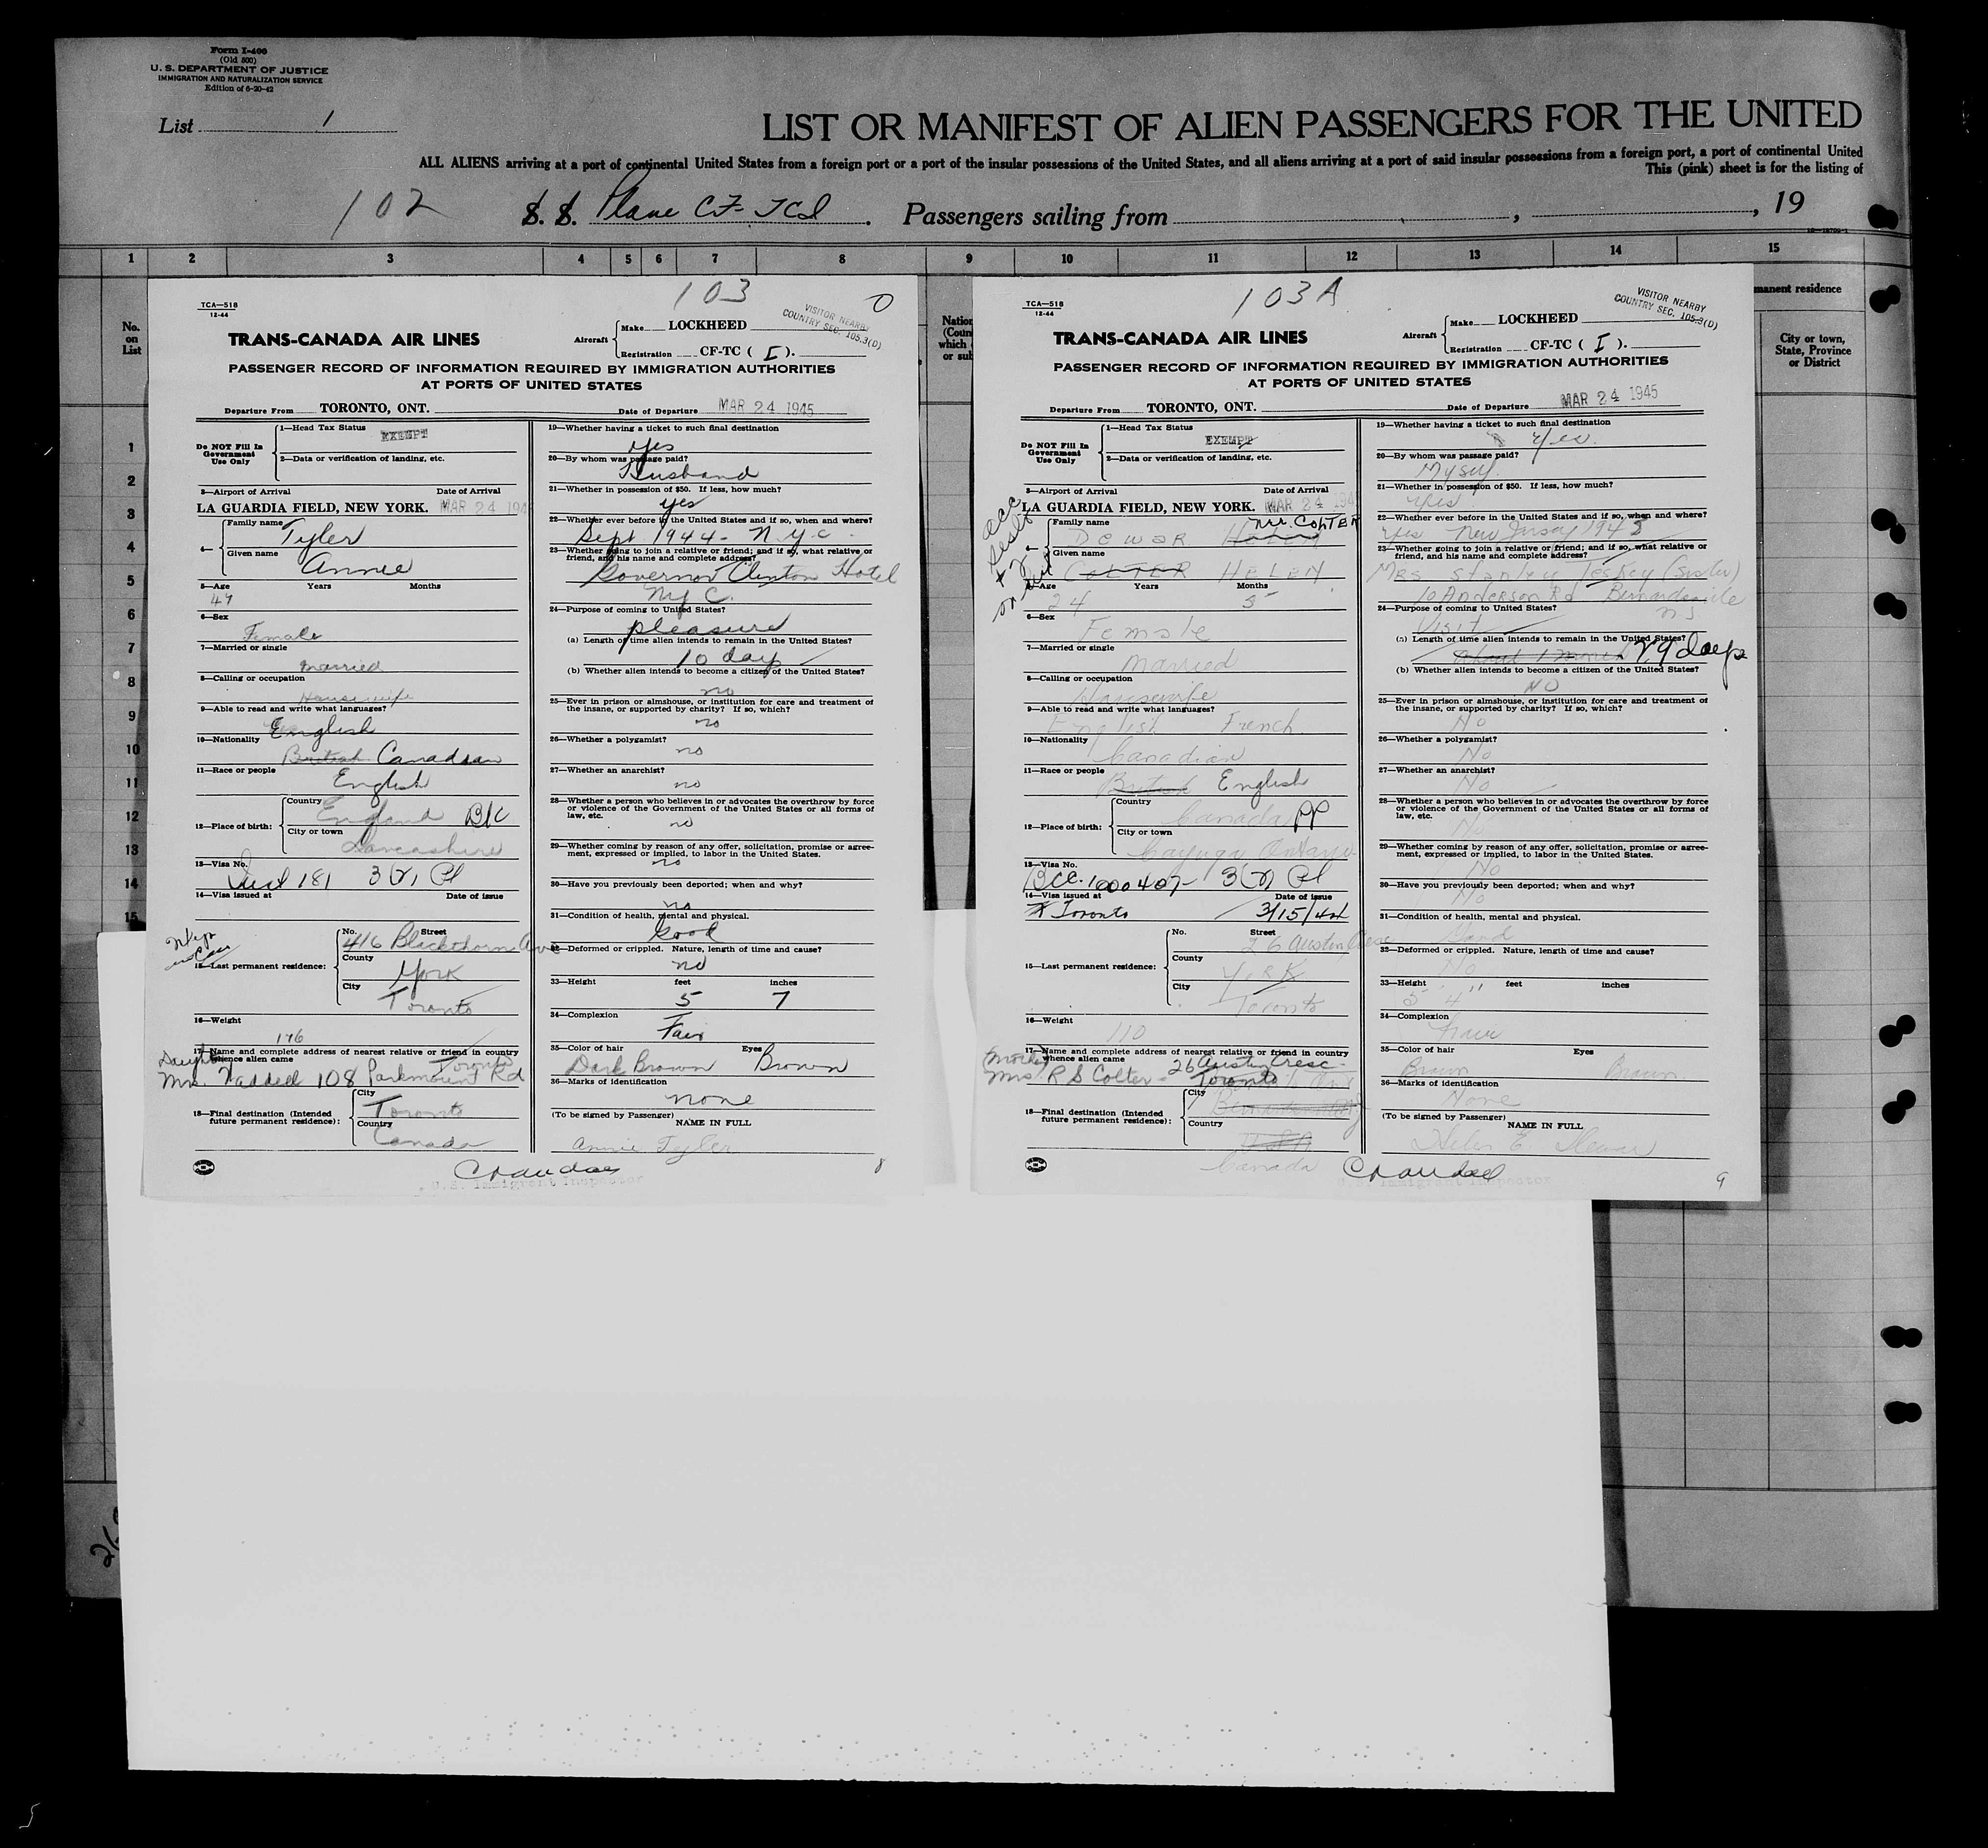 Form I-400
(Old 500)
U. S. DEPARTMENT OF JUSTICE
IMMIGRATION AND NATURALIZATION SERVICE
Edition of 6-20-42
List 1
LIST OR MANIFEST OF ALIEN PASSENGERS FOR THE UNITED
ALL ALIENS arriving at a port of continental United States from a foreign port or a port of the insular possessions of the United States, and all aliens arriving at a port of said insular possessions from a foreign port, a port of continental United
This (pink) sheet is for the listing of
102 S. S. Plane CF-TCI . Passengers sailing from , , 19
1 2 3 4 5 6 7 8 9 10 11 12 13 14 15
No.
on
List
Nation
(Coun
which
or sub
manent residence
City or town,
State, Province
or District
1
2
3
4
5
6
7
8
9
10
11
12
13
14
15
103 0
TCA—518
12-44
VISITOR NEARBY
COUNTRY SEC. 105.3(D)
TRANS-CANADA AIR LINES
Aircraft Make LOCKHEED
Registration CF-TC ( I ).
PASSENGER RECORD OF INFORMATION REQUIRED BY IMMIGRATION AUTHORITIES
AT PORTS OF UNITED STATES
Departure From TORONTO, ONT. Date of Departure MAR 24 1945
Do NOT Fill In
Government
Use Only
1—Head Tax Status EXEMPT
2—Data or verification of landing, etc.
3—Airport of Arrival Date of Arrival
LA GUARDIA FIELD, NEW YORK. MAR 24 194
4— Family name Tyler
Given name Annie
5—Age Years Months
47
6—Sex
Female
7—Married or single
married
8—Calling or occupation
Housewife
9—Able to read and write what languages?
English
10—Nationality
British Canadian
11—Race or people
English
12—Place of birth: Country England B/C
City or town Lancashire
13—Visa No.
181 3(2)
14—Visa issued at Date of issue
15—Last permanent residence: No. Street
416 Blackthorn Ave
County York
City Toronto
16—Weight
176
17—Name and complete address of nearest relative or friend in country
whence alien came
Toronto
Mrs. Waddell 108 Parkmount Rd
18—Final destination (Intended
future permanent residence): City Toronto
Country Canada
19—Whether having a ticket to such final destination
Yes
20—By whom was passage paid?
Husband
21—Whether in possession of $50. If less, how much?
yes
22—Whether ever before in the United States and if so, when and where?
Sept 1944 - N.Y.C.
23—Whether going to join a relative or friend; and if so, what relative or
friend, and his name and complete address?
Governor Clinton Hotel
NYC.
24—Purpose of coming to United States?
pleasure
(a) Length of time alien intends to remain in the United States?
10 days
(b) Whether alien intends to become a citizen of the United States?
no
25—Ever in prison or almshouse, or institution for care and treatment of
the insane, or supported by charity? If so, which?
no
26—Whether a polygamist?
no
27—Whether an anarchist?
no
28—Whether a person who believes in or advocates the overthrow by force
or violence of the Government of the United States or all forms of
law, etc.
no
29—Whether coming by reason of any offer, solicitation, promise or agree-
ment, expressed or implied, to labor in the United States.
no
30—Have you previously been deported; when and why?
no
31—Condition of health, mental and physical.
Good
32—Deformed or crippled. Nature, length of time and cause?
no
33—Height feet inches
5 7
34—Complexion
Fair
35—Color of hair Eyes
Dark Brown Brown
36—Marks of identification
none
(To be signed by Passenger)
NAME IN FULL
Annie Tyler
U.S. Immigrant Inspector
8
103A
TCA—518
12-44
VISITOR NEARBY
COUNTRY SEC. 105.3(D)
TRANS-CANADA AIR LINES
Aircraft Make LOCKHEED
Registration CF-TC ( I ).
PASSENGER RECORD OF INFORMATION REQUIRED BY IMMIGRATION AUTHORITIES
AT PORTS OF UNITED STATES
Departure From TORONTO, ONT. Date of Departure MAR 24 1945
Do NOT Fill In
Government
Use Only
1—Head Tax Status EXEMPT
2—Data or verification of landing, etc.
3—Airport of Arrival Date of Arrival
LA GUARDIA FIELD, NEW YORK. MAR 24 194
4— Family name née COLTER
DEWAR HELEN
Given name
COLTER HELEN
5—Age Years Months
24 5
6—Sex
Female
7—Married or single
Married
8—Calling or occupation
Housewife
9—Able to read and write what languages?
English French
10—Nationality
Canadian
11—Race or people
British English
12—Place of birth: Country Canada PP
City or town Cayuga Ontario
13—Visa No.
BCC. 1000407 3(2)
14—Visa issued at Date of issue
Toronto 3/15/44
15—Last permanent residence: No. Street
26 Austin Cresc
County York
City Toronto
16—Weight
110
17—Name and complete address of nearest relative or friend in country
whence alien came
(Mother)
Mrs R S Colter - 26 Austin Cresc.
Toronto
18—Final destination (Intended
future permanent residence): City
Country
Canada
19—Whether having a ticket to such final destination
Yes
20—By whom was passage paid?
Myself
21—Whether in possession of $50. If less, how much?
Yes
22—Whether ever before in the United States and if so, when and where?
Yes New Jersey 1943
23—Whether going to join a relative or friend; and if so, what relative or
friend, and his name and complete address?
Mrs Stanley Toskey (Sister)
10 Anderson Rd Bernardsville
NJ
24—Purpose of coming to United States?
Visit
(a) Length of time alien intends to remain in the United States?
about 1 month 29 days
(b) Whether alien intends to become a citizen of the United States?
NO
25—Ever in prison or almshouse, or institution for care and treatment of
the insane, or supported by charity? If so, which?
No
26—Whether a polygamist?
No
27—Whether an anarchist?
No
28—Whether a person who believes in or advocates the overthrow by force
or violence of the Government of the United States or all forms of
law, etc.
No
29—Whether coming by reason of any offer, solicitation, promise or agree-
ment, expressed or implied, to labor in the United States.
No
30—Have you previously been deported; when and why?
No
31—Condition of health, mental and physical.
Good
32—Deformed or crippled. Nature, length of time and cause?
No
33—Height feet inches
5' 4"
34—Complexion
35—Color of hair Eyes
Brown Brown
36—Marks of identification
None
(To be signed by Passenger)
NAME IN FULL
Helen E Dewar
U.S. Immigrant Inspector
9